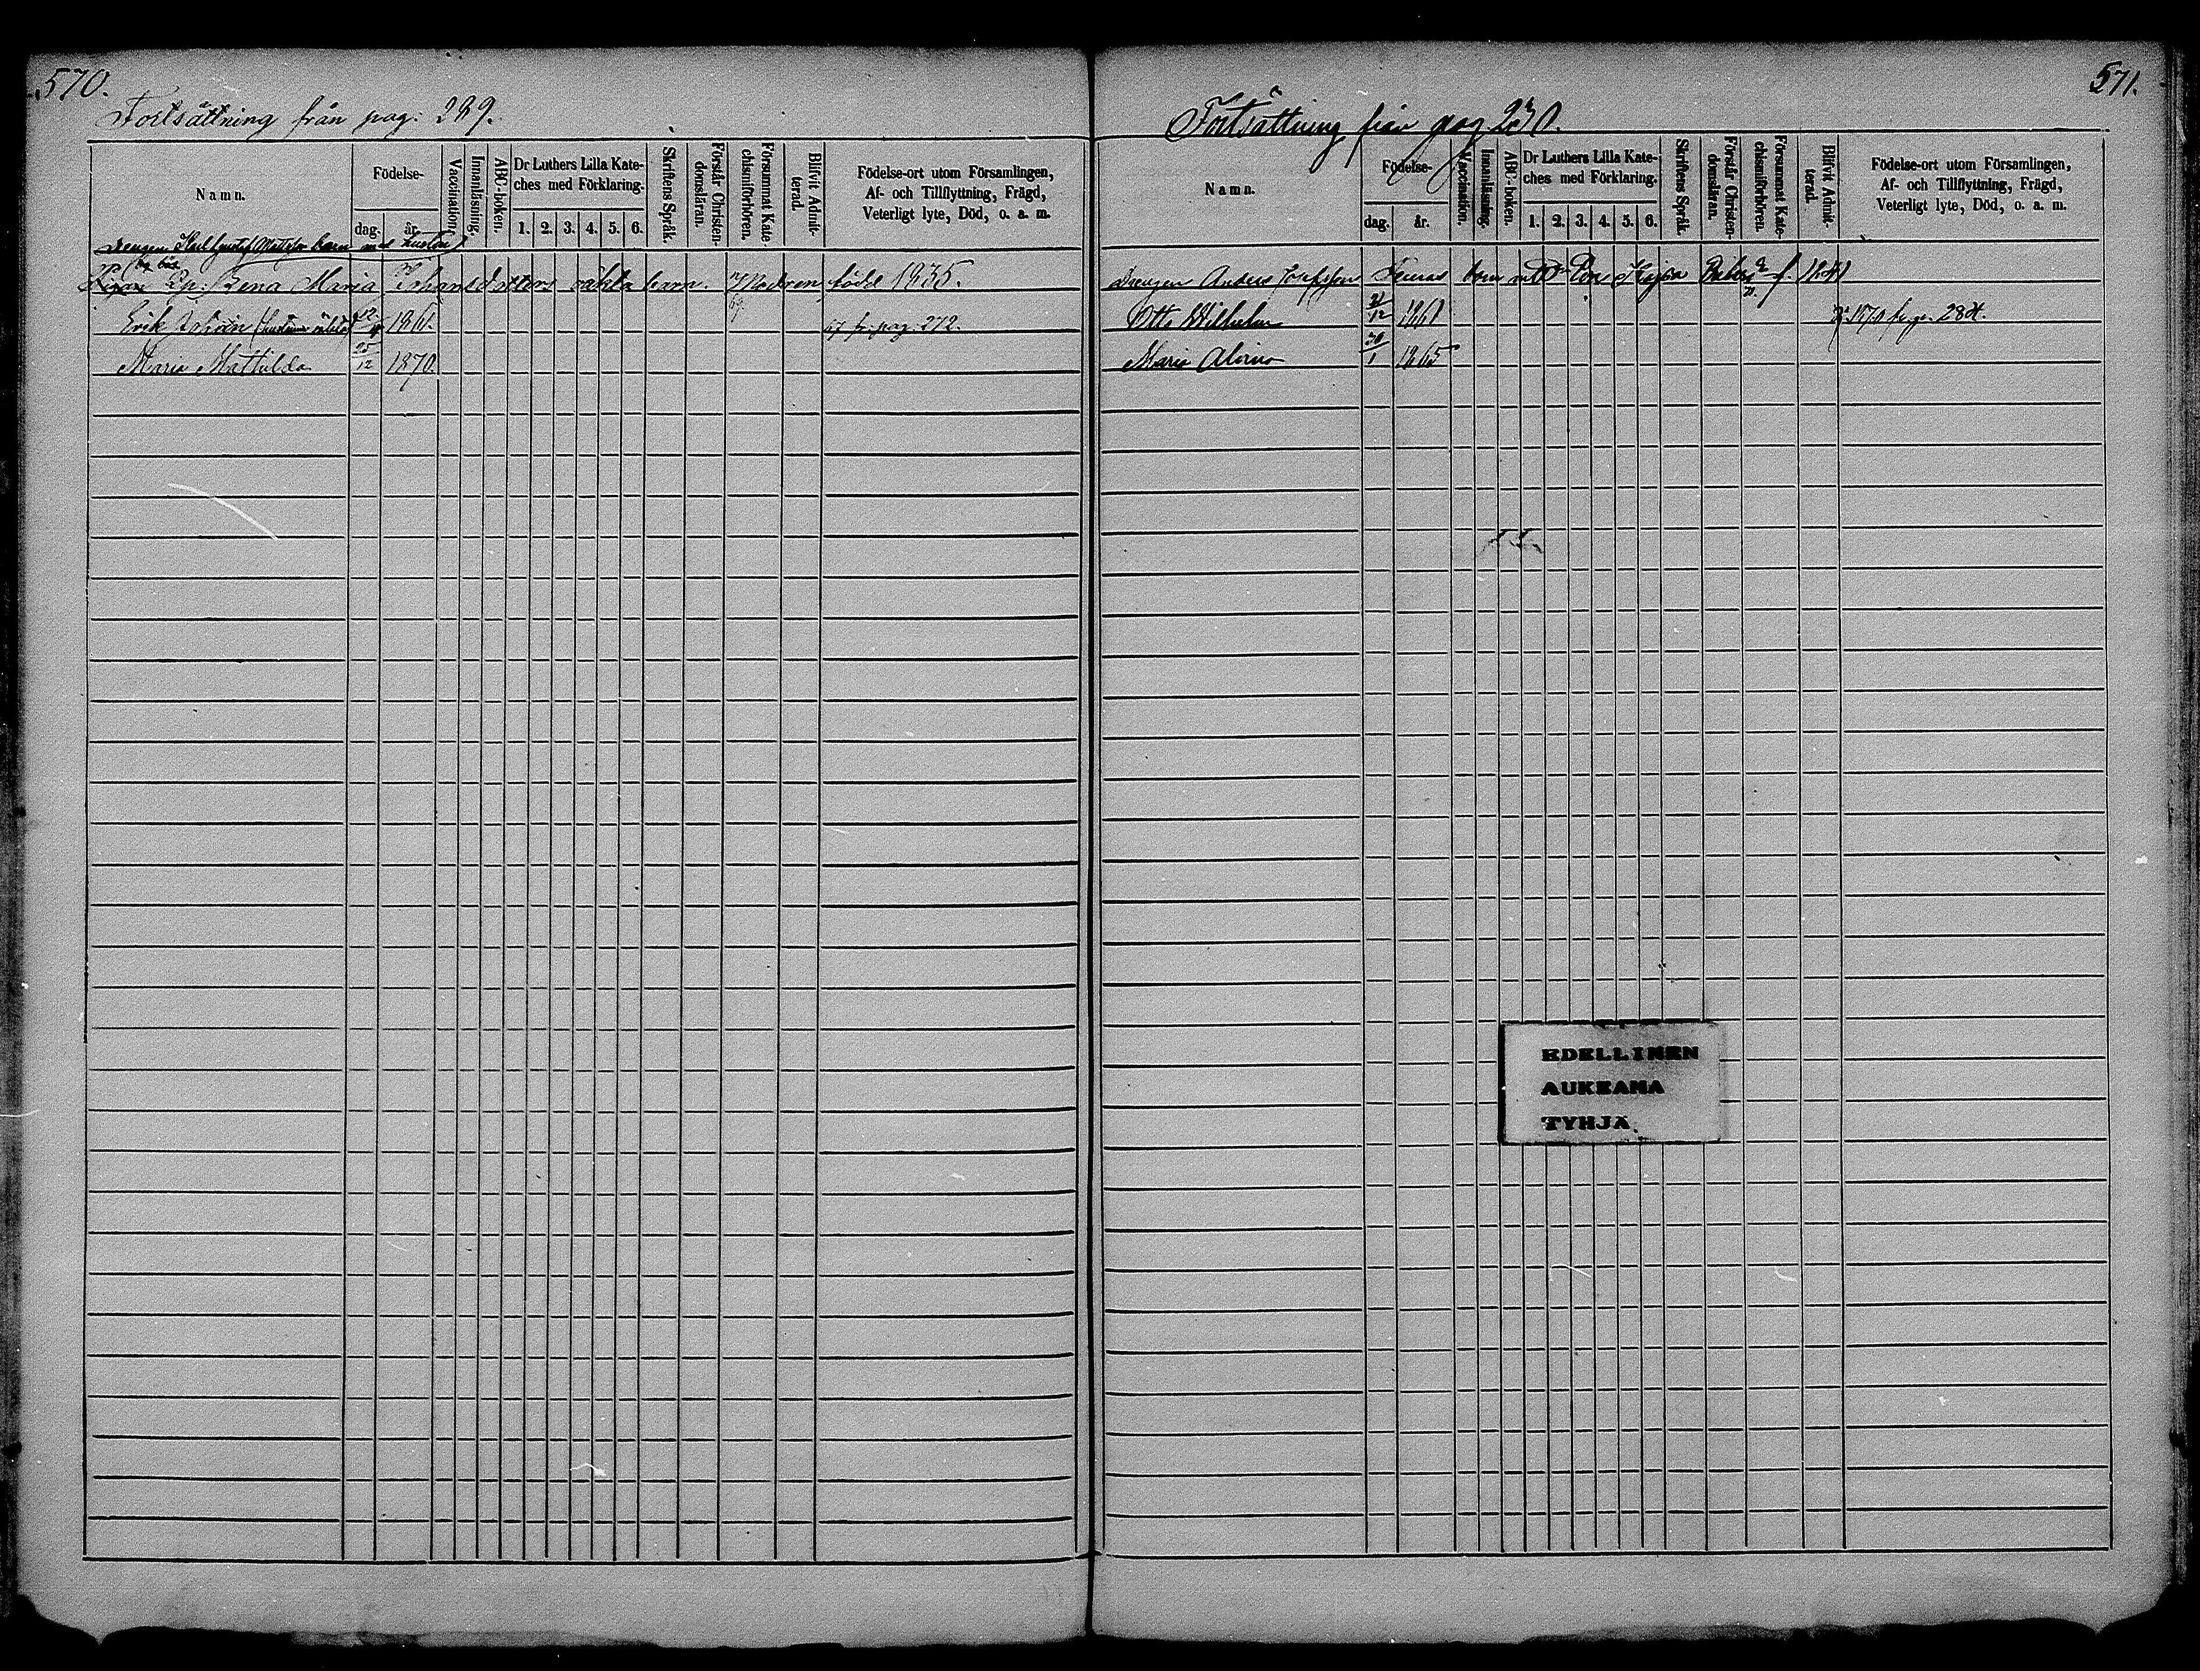 570.
Fortsättning från pag: 229.
Namn.
Födelse-
dag.
år.
Vaccination.
Innanläsning.
ABC-boken.
Dr Luthers Lilla Kate-
ches med Förklaring.
1. 2. 3. 4. 5. 6.
Skriftens Språk.
Förstår Christen-
domsläran.
Försummat Kate
chismiförhören.
Blifvit Admit-
terad.
Födelse-ort utom Församlingen,
Af- och Tillflyttning, Frägd,
Veterligt lyte, Död, o. a. m.
Drengen Karl Gustaf barn med hustru
Lena Maria Johansdotters oäkta barn. Modren född 1835.
Erik Johan 12 186 67 fr. pag. 272.
Maria Mathilda 25/12 1870.
571.
Fortsättning från pag. 230.
Namn.
Födelse-
dag.
år.
Vaccination.
Innanläsning.
ABC-boken.
Dr Luthers Lilla Kate-
ches med Förklaring.
1. 2. 3. 4. 5. 6.
Skriftens Språk.
Förstår Christen-
domsläran.
Försummat Kate-
chismiförhören.
Blifvit Admit-
terad.
Födelse-ort utom Församlingen,
Af- och Tillflyttning, Frägd,
Veterligt lyte, Död, o. a. m.
Drengen Anders barn Kajsa f. 1841
Otto Wilhelm 21/12 1861 1870 fr. pag. 284.
Maria 20/1 1865
EDELLINEN
AUKEAMA
TYHJÄ.